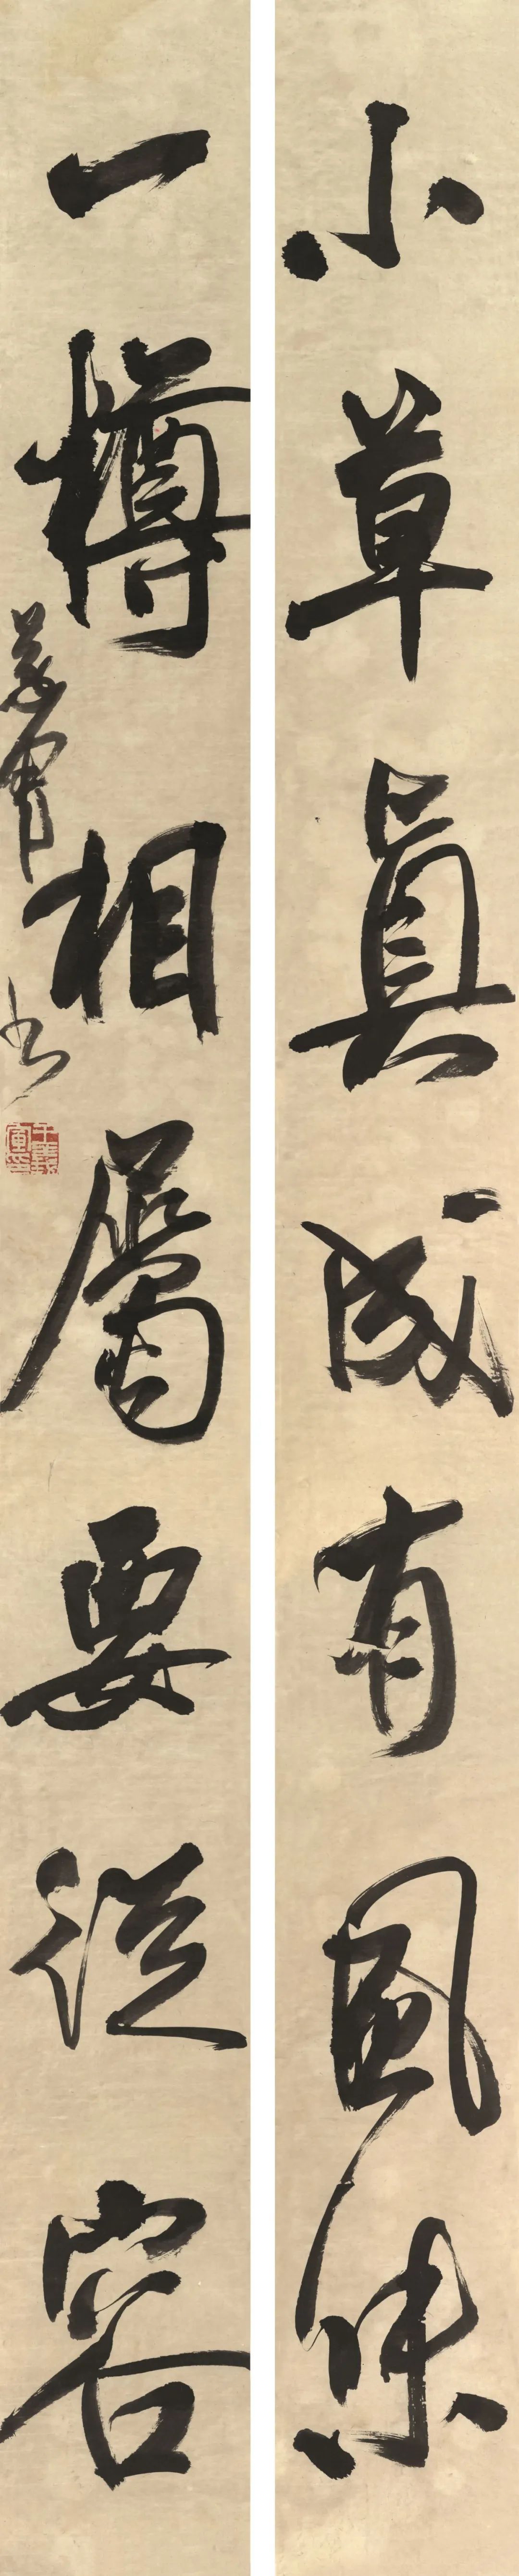 小草真成有風味
一樽相屬要從容